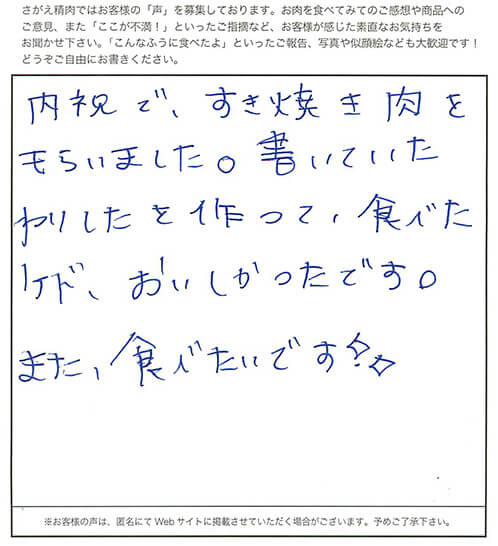 さがえ精肉ではお客様の「声」を募集しております。お肉を食べてみてのご感想や商品への
ご意見、また「ここが不満！」といったご指摘など、お客様が感じた素直なお気持ちを
お聞かせ下さい。「こんなふうに食べたよ」といったご報告、写真や似顔絵なども大歓迎です！
どうぞご自由にお書きください。
内祝で、すき焼き肉を
もらいました。書いていた
わりしたを作って、食べた
けど、おいしかったです。
また、食べたいです!
※お客様の声は、匿名にて Web サイトに掲載させていただく場合がございます。予めご了承下さい。